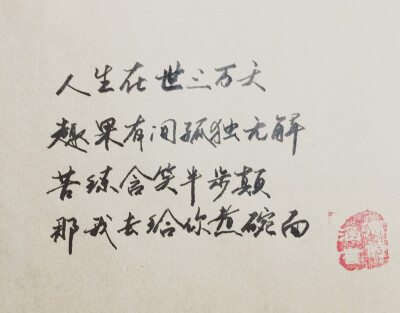 人生在世三万天
趣果有间孤独无解
苦练含笑半步颠
那我去给你煮碗面